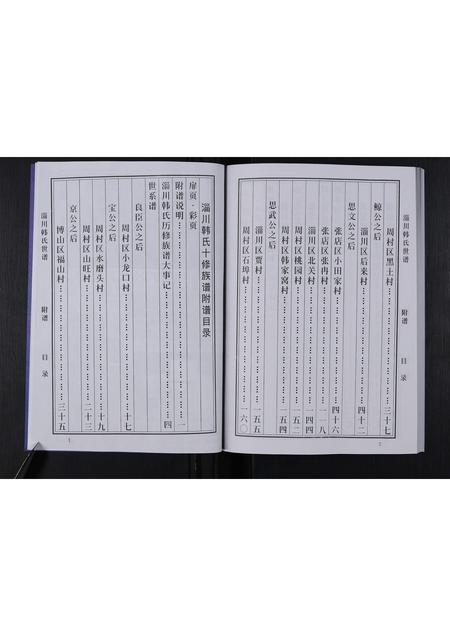 淄川韩氏十修族谱附谱目录
扉页·彩页
附谱说明……………………一
淄川韩氏历修族谱大事记………四
世系谱
良臣公之后
周村区小龙口村……………十七
宝公之后
周村区水磨头村……………十九
周村区山旺村……………二十三
京公之后
博山区福山村……………三十五
淄川韩氏世谱 附谱 目录
1
淄川韩氏世谱 附谱 目录
周村区黑土村……………三十七
鲸公之后
淄川区后来村……………四十二
思文公之后
张店区小田家村……………四十六
张店区张冉村……………一一八
淄川区北关村……………一四四
周村区桃园村……………一五二
周村区韩家窝村……………一五四
思武公之后
淄川区贾村……………一五五
周村区石埠村……………一六〇
2